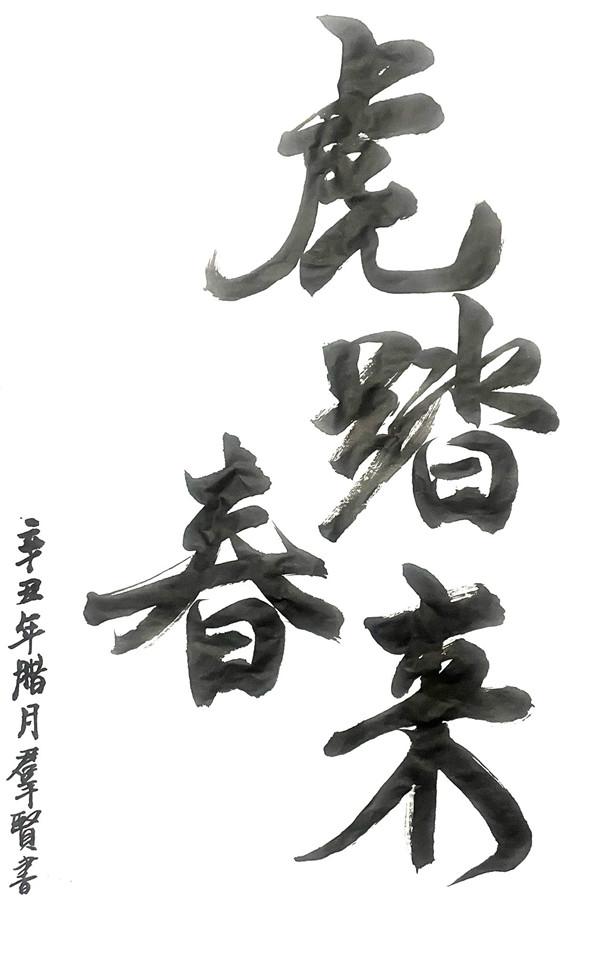 虎踏来
春
辛丑年腊月羣賢書